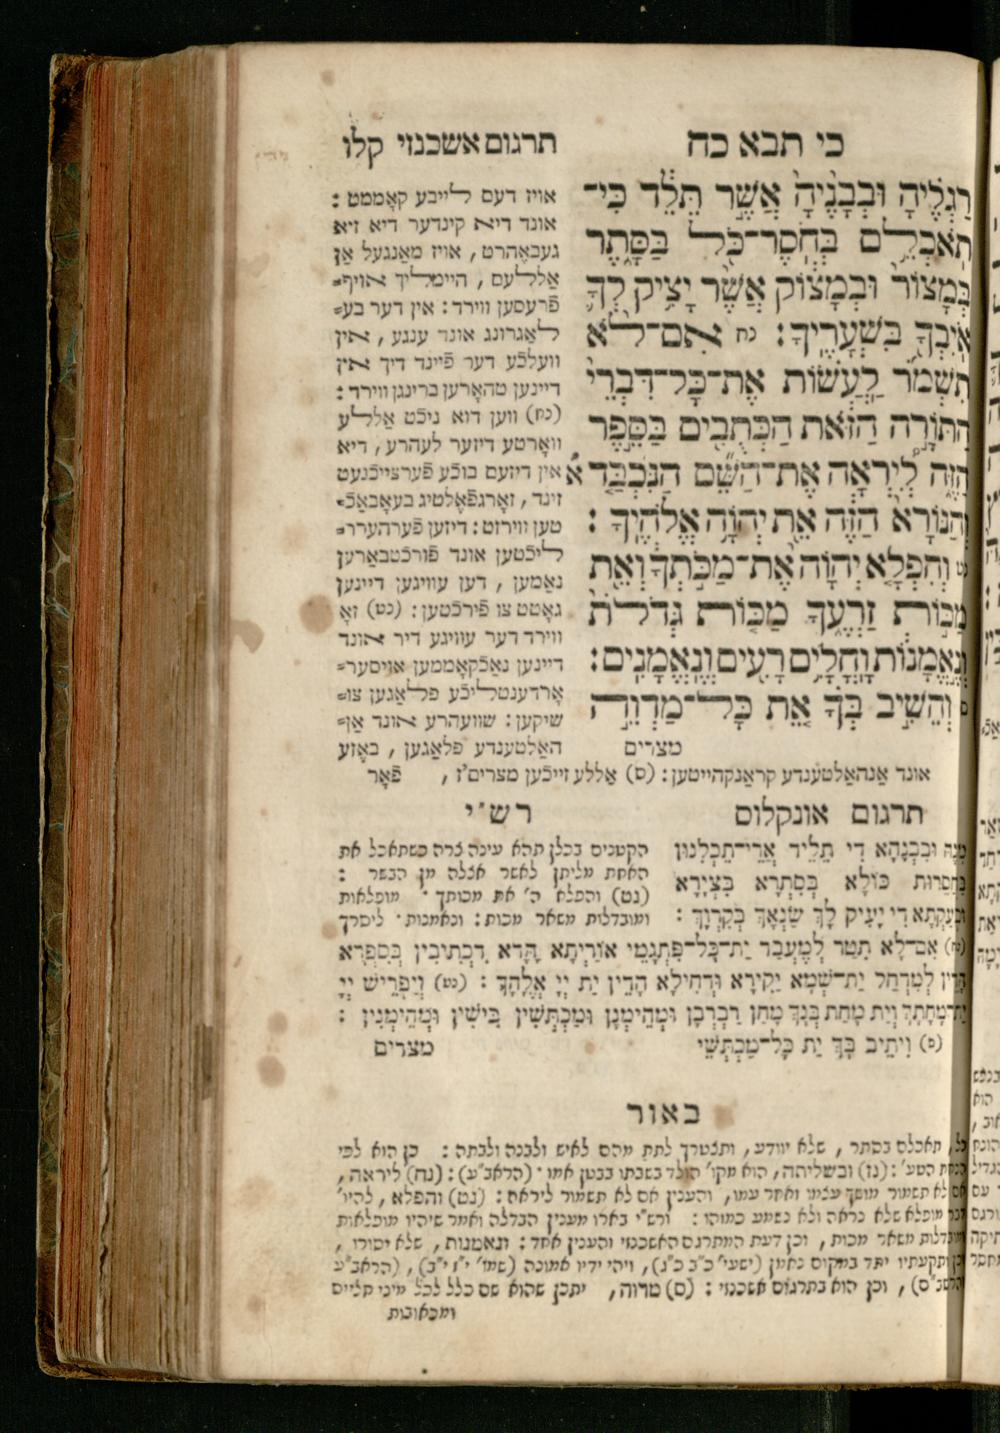 כי תבא כח
תרגום אשכנזי קלו
רַגְלֶיהָ וּבְבָנֶיהָ אֲשֶׁר תֵּלֵד כִּי־
תֹאכְלֵם בְּחֹסֶר־כֹּל בַּסָּתֶר
בְּמָצוֹר וּבְמָצוֹק אֲשֶׁר יָצִיק לְךָ
אֹיִבְךָ בִּשְׁעָרֶיךָ : נח אִם־לֹא
תִשְׁמֹר לַעֲשׂוֹת אֶת־כָּל־דִּבְרֵי
הַתּוֹרָה הַזֹּאת הַכְּתֻבִים בַּסֵּפֶר
הַזֶּה לְיִרְאָה אֶת־הַשֵּׁם הַנִּכְבָּד
וְהַנּוֹרָא הַזֶּה אֵת יְהוָֹה אֱלֹהֶיךָ :
נט וְהִפְלָא יְהוָֹה אֶת־מַכֹּתְךָ וְאֵת
מַכּוֹת זַרְעֶךָ מַכּוֹת גְּדֹלֹת
וְנֶאֱמָנוֹת וָחֳלָיִם רָעִים וְנֶאֱמָנִים :
ס וְהֵשִׁיב בְּךָ אֵת כָּל־מַדְוֵה
מצרים
אויז דעם לייבע קאָממט :
אונד דיא קינדער דיא זיא
געבאֶהרט , אויז מאַנגעל אַן
אַללעם , היימליך אויף־
פֿרעסען ווירד : אין דער בע־
לאַגרונג אונד ענגע , אין
וועלכֿע דער פֿיינד דיך אין
דיינען טהאָרען ברינגען ווירד :
(נח) ווען דוא ניכֿט אַללע
וואָרטע דיזער לעהרע , דיא
אין דיזעם בוכֿע פֿערצייכֿנעט
זינד , זאָרגפֿאֶלטיג בעאָבאַכֿ־
טען ווירזט : דיזען פֿערהערר־
ליכֿטען אונד פֿורכֿטבאַרען
נאַמען , דען עוויגען דיינען
גאָטט צו פֿירכֿטען : (נט) זאָ
ווירד דער עוויגע דיר אונד
דיינען נאַכֿקאָממען אויסער־
אָרדענטליכֿע פלאַגען צו־
שיקען : שוועהרע אונד אַן־
האַלטענדע פלאַגען , באֶזע
אונד אַנהאַלטענדע קראַנקהייטען : (ס) אַללע זייכֿען מצרים'ז , פֿאָר
תרגום אונקלוס
רש״י
מִנַּהּ וּבִבְנָהָא דִי תְלִיד אֲרֵי־תֵכְלִנּוּן
בַּחֲסִרוּת כּוֹלָא בְּסִתְרָא בְּצִיָרָא
וּבְעָקְתָא דִי יָעִיק לָךְ שַׂנְאָךְ בְּקִרְוָךְ :
הקטנים בכלן תהא עינה צרה כשתאכל את
האחת מליתן לאשר אצלה מן הבשר :
(נט) והפלא ה' את מכותך · מופלאות
ומובדלות משאר מכות : ונאמנות · ליסרך
(נח) אִם־לָא תִטַר לְמֶעְבַּד יַת־כָּל־פִּתְגָמֵי אוֹרַיְתָא הָדָא דִכְתִיבִין בְּסִפְרָא
הָדֵין לְמִדְחַל יַת־שְׁמָא יַקִירָא וּדְחִילָא הָדֵין יַת יְיָ אֱלָהָךְ : (נט) וְיַפְרֵישׁ יְיָ
יַת־מָחָתָךְ וְיָת מָחַת בְּנָךְ מָחַן רַבְרְבָן וּמְהֵימְנָן וּמַכְתָּשִׁין בִּישִׁין וּמְהֵימְנִין :
(ס) וִיתֵיב בָּךְ יַת כָּל־מַכְתְּשֵׁי
מצרים
באור
כל, תאכלם בסתר , שלא יוודע , ותצטרך לתת מהם לאיש ולבנה ולבתה : כן הוא לפי
הנחת הטע' : (נז) ובשליתה, הוא מקו' הולד בשבתו בבטן אמו · (הראב"ע) : (נח) ליראה,
אם לא תשמור מושך עצמו ואחר עמו, והענין אם לא תשמור ליראה : (נט) והפלא , להיו'
דבר מופלא שלא נראה ולא נשמע כמוהו : ורש"י בארו מענין הבדלה ואמר שיהיו מופלאות
ומובדלות משאר מכות , וכן דעת המתרגם האשכנזי והענין אחד : ונאמנות, שלא יסורו ,
וכן ותקעתיו יתד במקום נאמן (ישעי' כ"ב כ"ג), ויהי ידיו אמונה (שמו' י"ז י"ב), (הראב"ע
והרשב"ם) , וכן הוא בתרגום אשכנזי : (ס) מדוה, יתכן שהוא שם כלל לכל מיני חליים
ומכאובות